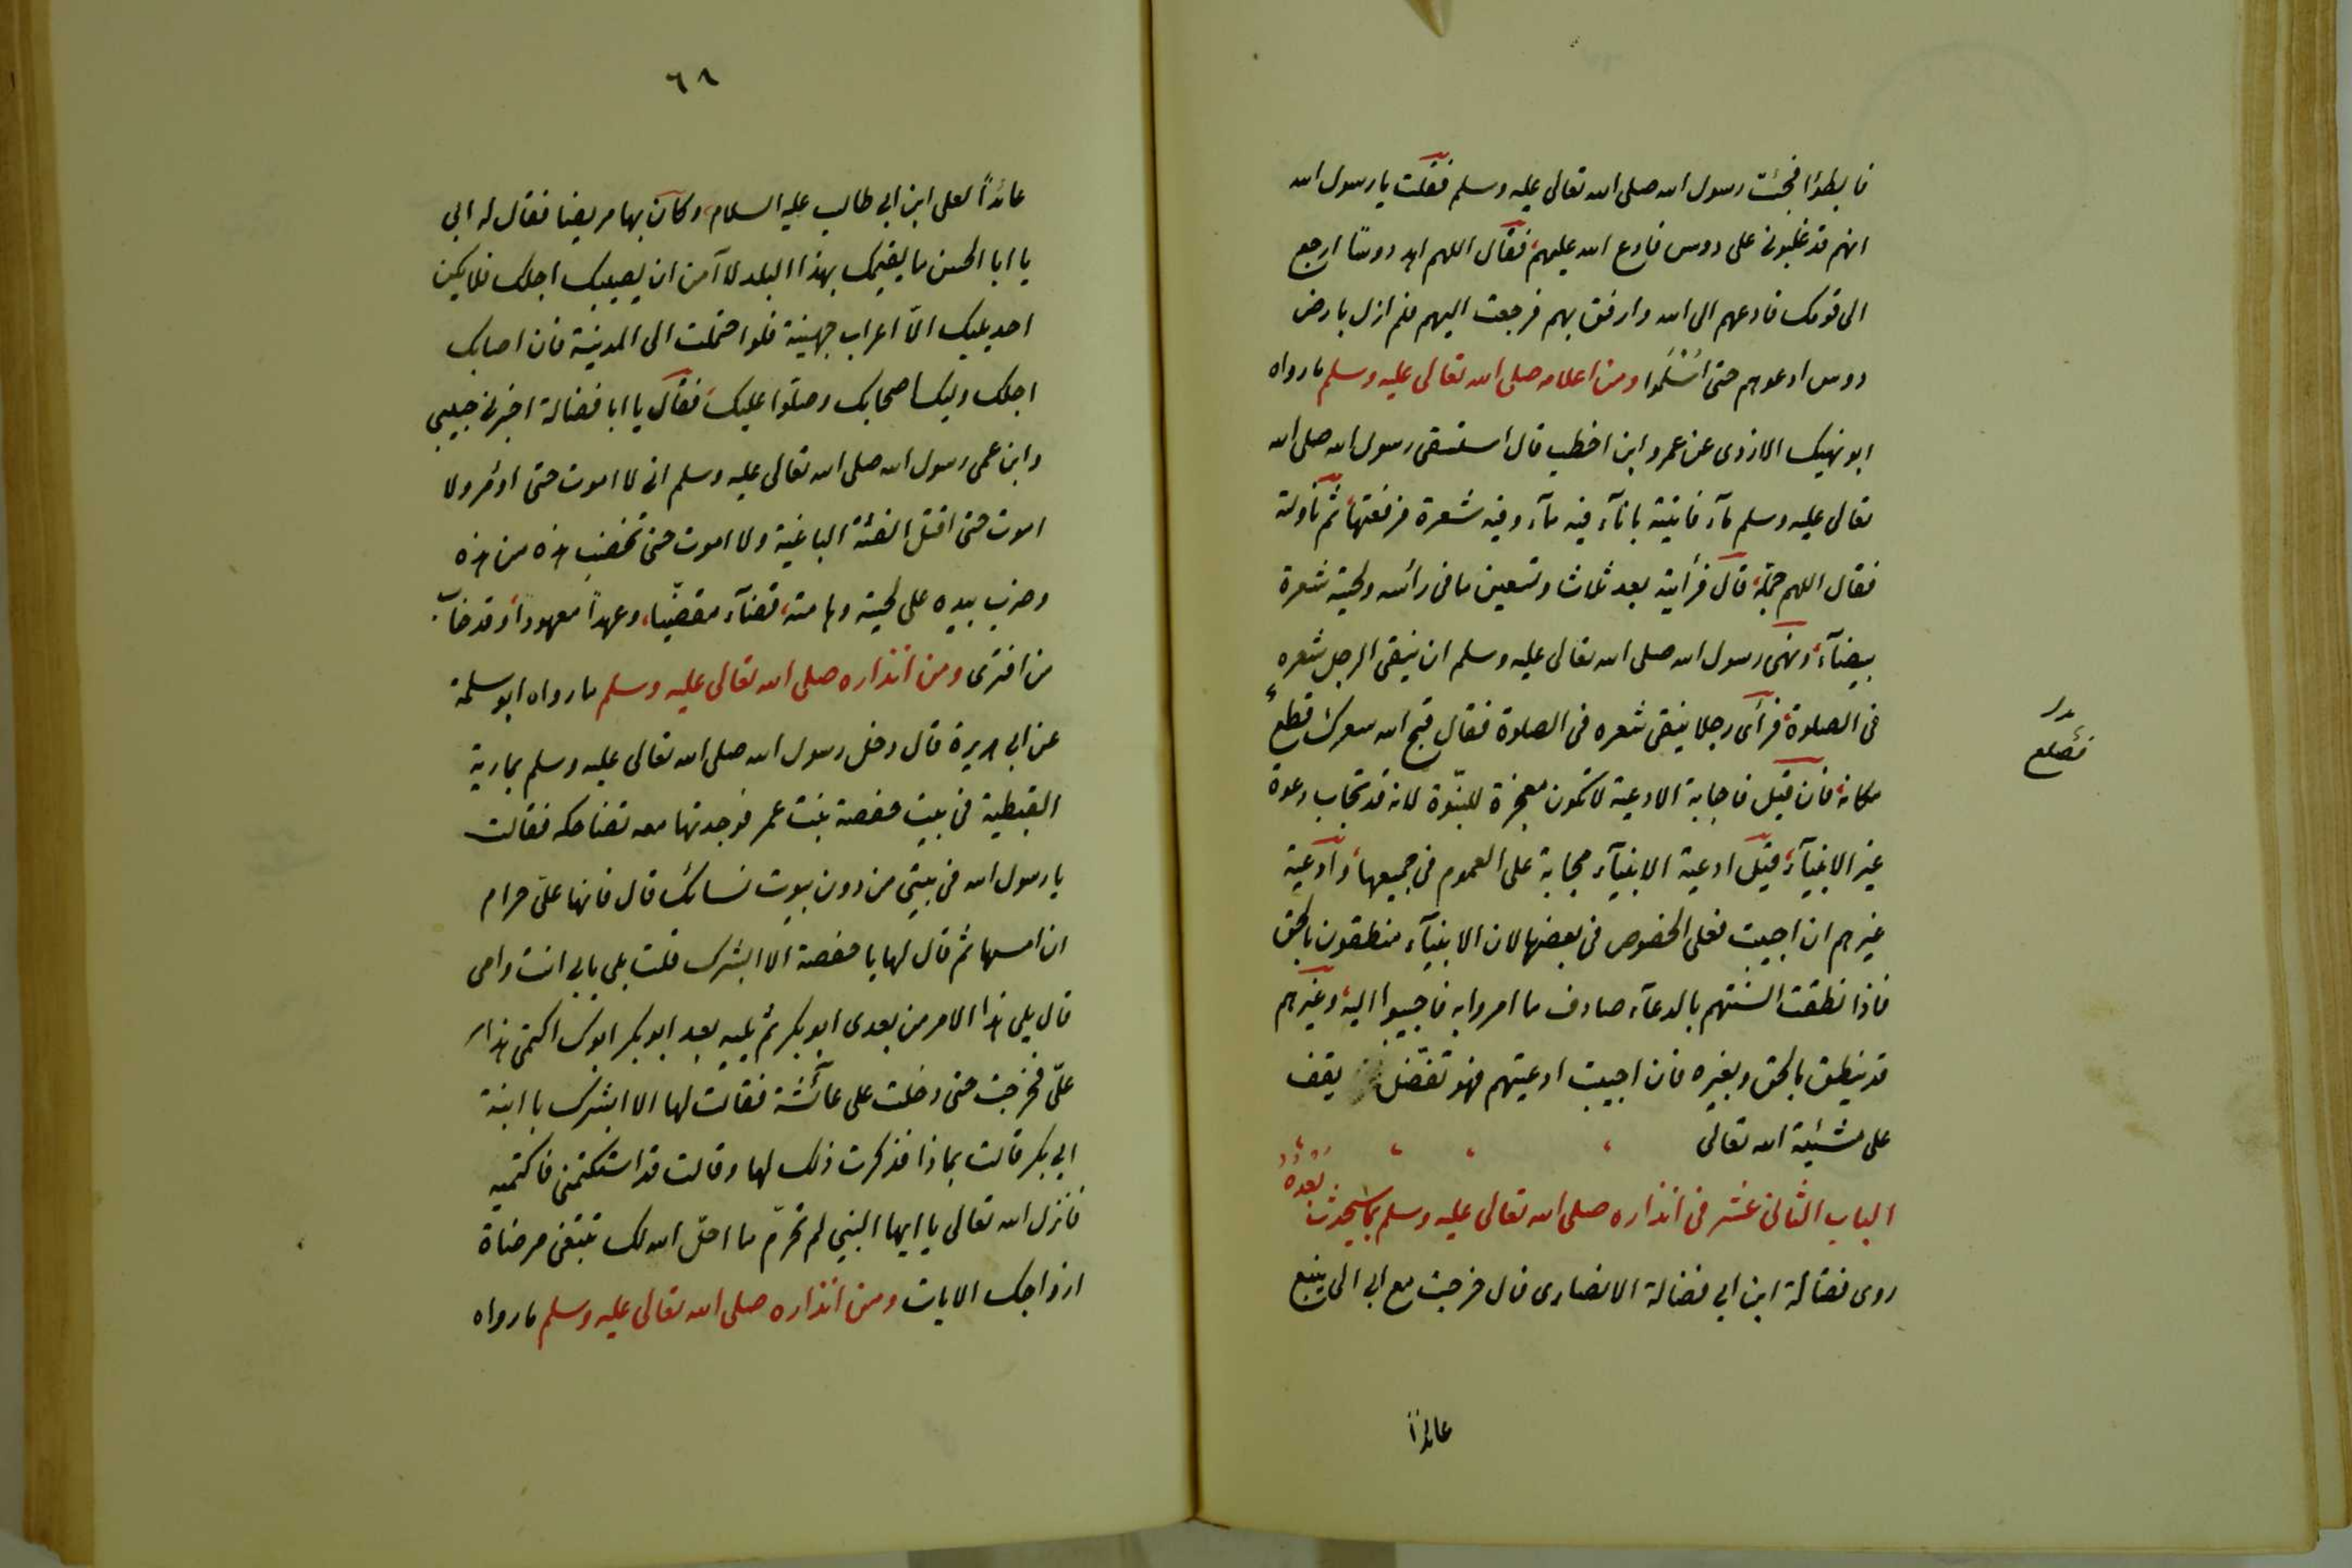 فابطؤا فجئت رسول الله صلى الله تعالى عليه وسلم فقلت يا رسول الله
انهم قد غلبونى على دوس فادع الله عليهم فقال اللهم اهد دوسًا ارجع
الى قومك فادعهم الى الله وارفق بهم فرجعت اليهم فلم ازل بارض
دوس ادعوهم حتى اسْلَموا ومن اعلامه صلى الله تعالى عليه وسلم ما رواه
ابو نهيك الازدى عن عمرو ابن اخطب قال استسقى رسول الله صلى الله
تعالى عليه وسلم مآء فاتيته بانآء فيه مآء وفيه شعرة فرفعتها ثم ناولته
فقال اللهم جمّله قال فرأيته بعد ثلاث وتسعين ما فى رأسه ولحيته شعرة
بيضآء ونهى رسول الله صلى الله تعالى عليه وسلم ان ينقى الرجل شعره
فى الصلوة فرآى رجلا ينقى شعره فى الصلوة فقال قبح الله شعرك قطع
فصلع
مكانه فان قيل فاجابة الادعية لا تكون معجزة للنبوّة لانه قد تجاب دعوة
غير الانبيآء قيل ادعية الانبيآء مجابة على العموم فى جميعها وادعية
غيرهم ان اجيبت فعلى الخصوص فى بعضها لان الانبيآء منطقون بالحق
فاذا نطقت السنتهم بالدعآء صادف ما امروا به فاجيبوا اليه وغيرهم
قد ينطق بالحق وبغيره فان اجيبت ادعيتهم فهو تفضّل يقف
على مشيئة الله تعالى
الباب الثانى عشر فى انذاره صلى الله تعالى عليه وسلم بما سيحدث بعده
روى فضالة ابن ابى فضالة الانصارى قال خرجت مع ابى الى ينبع
عائدًا
٦٨
عائدًا لعلى ابن ابى طالب عليه السلام وكان بها مريضا فقال له ابى
يا ابا الحسن ما يقيمك بهذا البلد لا آمن ان يصيبك اجلك فلا يكن
احد يليك الّا اعراب جهينة فلو احتملت الى المدينة فان اصابك
اجلك وليك اصحابك وصلّوا عليك فقال يا ابا فضالة اخبرنى حبيبى
وابن عمى رسول الله صلى الله تعالى عليه وسلم انى لا اموت حتى اوٴمر ولا
اموت حتى اقتل الفئة الباغية ولا اموت حتى تخضب هذه من هذه
وضرب بيده على لحيته وهامته قضآء مقضيّا وعهدًا معهودًا وقد خاب
من افترى ومن انذاره صلى الله تعالى عليه وسلم ما رواه ابو سلمة
عن ابى هريرة قال دخل رسول الله صلى الله تعالى عليه وسلم بمارية
القبطية فى بيت حفصة بنت عمر فوجدتها معه تضاحكه فقالت
يا رسول الله فى بيتى من دون بيوت نسائك قال فانها علىّ حرام
ان امسها ثم قال لها يا حفصة الا ابشرك قلت بلى بابى انت وامى
قال يلى هذا الامر من بعدى ابو بكر ثم يليه بعد ابو بكر ابوك اكتمى هذا
علىّ فخرجت حتى دخلت على عآئشة فقالت لها الا ابشرك يا ابنة
ابى بكر قالت بماذا فذكرت ذلك لها وقالت قد استكتمنى فاكتميه
فانزل الله تعالى يا ايها النبى لم تحرّم ما احلّ الله لك تبتغى مرضاة
ازواجك الايات ومن انذاره صلى الله تعالى عليه وسلم ما رواه